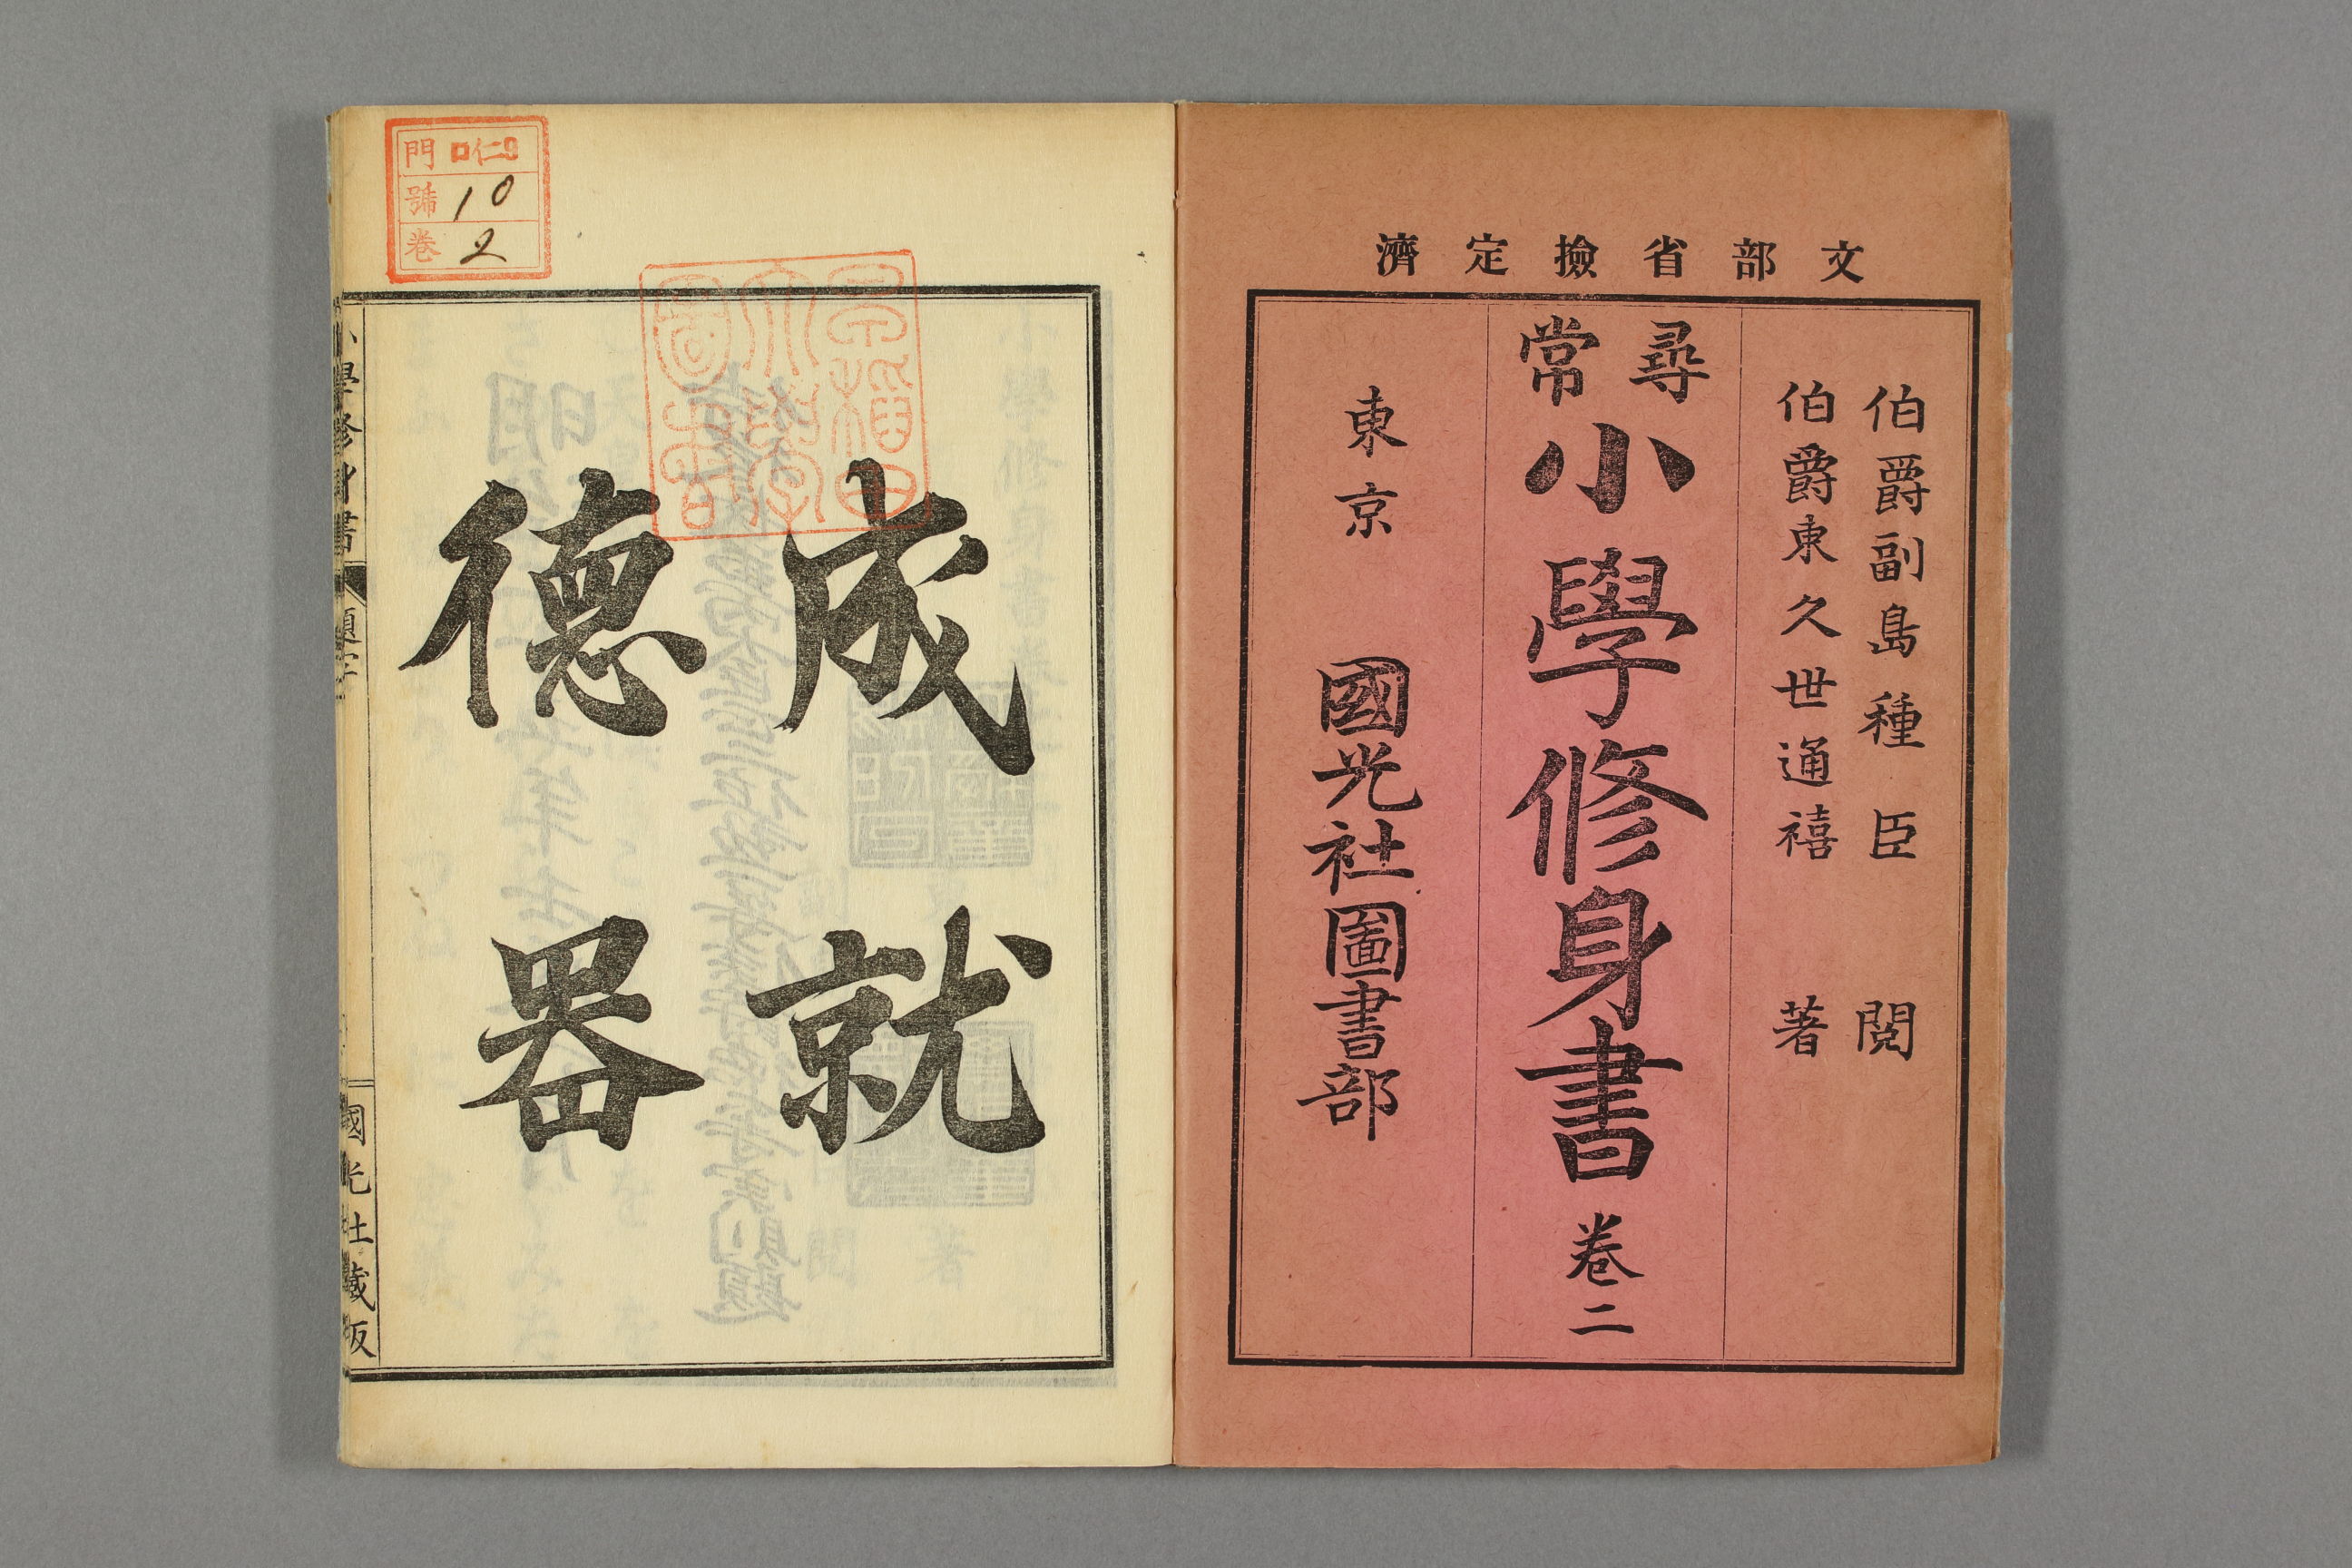 文部省撿定濟
伯爵副島種臣 閱
伯爵東久世通禧 著
尋常
小學修身書 卷二
東京 國光社圖書部
成就
德器
早稻田
大學
圖書
門 ロ仁9
號 10
卷 2
小學修身書 題字
國光社藏版